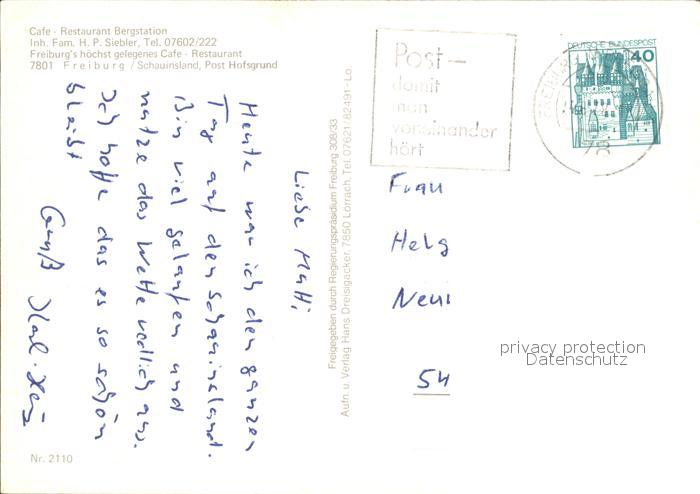 Cafe - Restaurant Bergstation
Inh. Fam. H. P. Siebler, Tel. 07602/222
Freiburg's höchst gelegenes Cafe - Restaurant
7801 Freiburg / Schauinsland, Post Hofsgrund
Liebe Mutti,
Heute war ich den ganzen
Tag auf den Schauinsland.
Bin viel gelaufen und
nutze das Wetter redlich aus.
Ich hoffe das es so schön
bleibt
Gruß Karl-Heinz
Nr. 2110
Freigegeben durch Regierungspräsidium Freiburg 308/33
Aufn. u. Verlag Hans Dreisigacker, 7850 Lörrach, Tel. 07621/82491-Lo
Post -
damit
man
voneinander
hört
DEUTSCHE BUNDESPOST
40
FREIBURG
Frau
Helg
54
privacy protection
Datenschutz